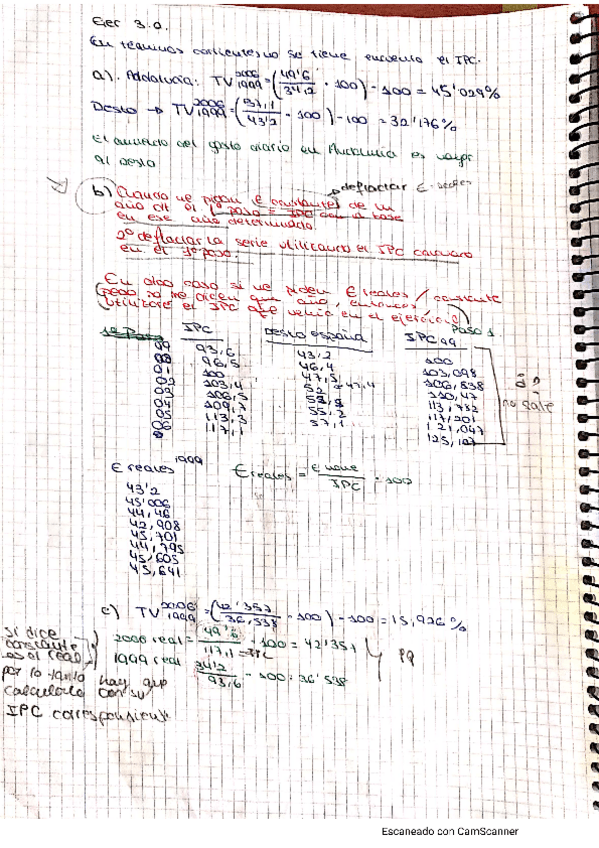 Ejer 3.0.
En términos corrientes no se tiene encuenta el IPC.
a). Andalucía: TV 2006 1999 = (49'6 / 34,2 · 100) - 100 = 45'029%
Resto → TV 2006 1999 = (57,1 / 43'2 · 100) - 100 = 32'176%
El aumento del gasto diario en Andalucia es mayor
al resto
deflactar
b) Cuando me piden € constantes de un
año
1º paso = IPC con la base
en ese año determinado.
2º deflactar la serie utilizando el IPC
en el 1º paso.
En otro caso si me piden € reales / constante
pero no me piden que año, entonces
utilizaré el IPC que venia en el ejercicio
1er Paso IPC resto españa IPC 99 Paso 1
99 93,6 43,2 100
00 96,5 46,4 103,098
01 100 47,5 106,838
02 103,4 47,4 110,47
03 106,5 113,782
04 109,7 55,2 117,201
05 113,3 121,047
06 117,1 57,1 125,107
no sale
€ reales 1999
€ reales = € / IPC · 100
43'2
45'006
44,46
42,908
45,701
44,795
45,605
45,641
c) TV 2006 1999 = (42'357 / 36,538 · 100) - 100 = 15,926%
2006 real = 49'6 / 117,1 · 100 = 42'357
1999 real 34'2 / 93,6 · 100 = 36'538
si dice
constante
es el real
por lo tanto hay que
calcularlo con su
IPC correspondiente
Escaneado con CamScanner